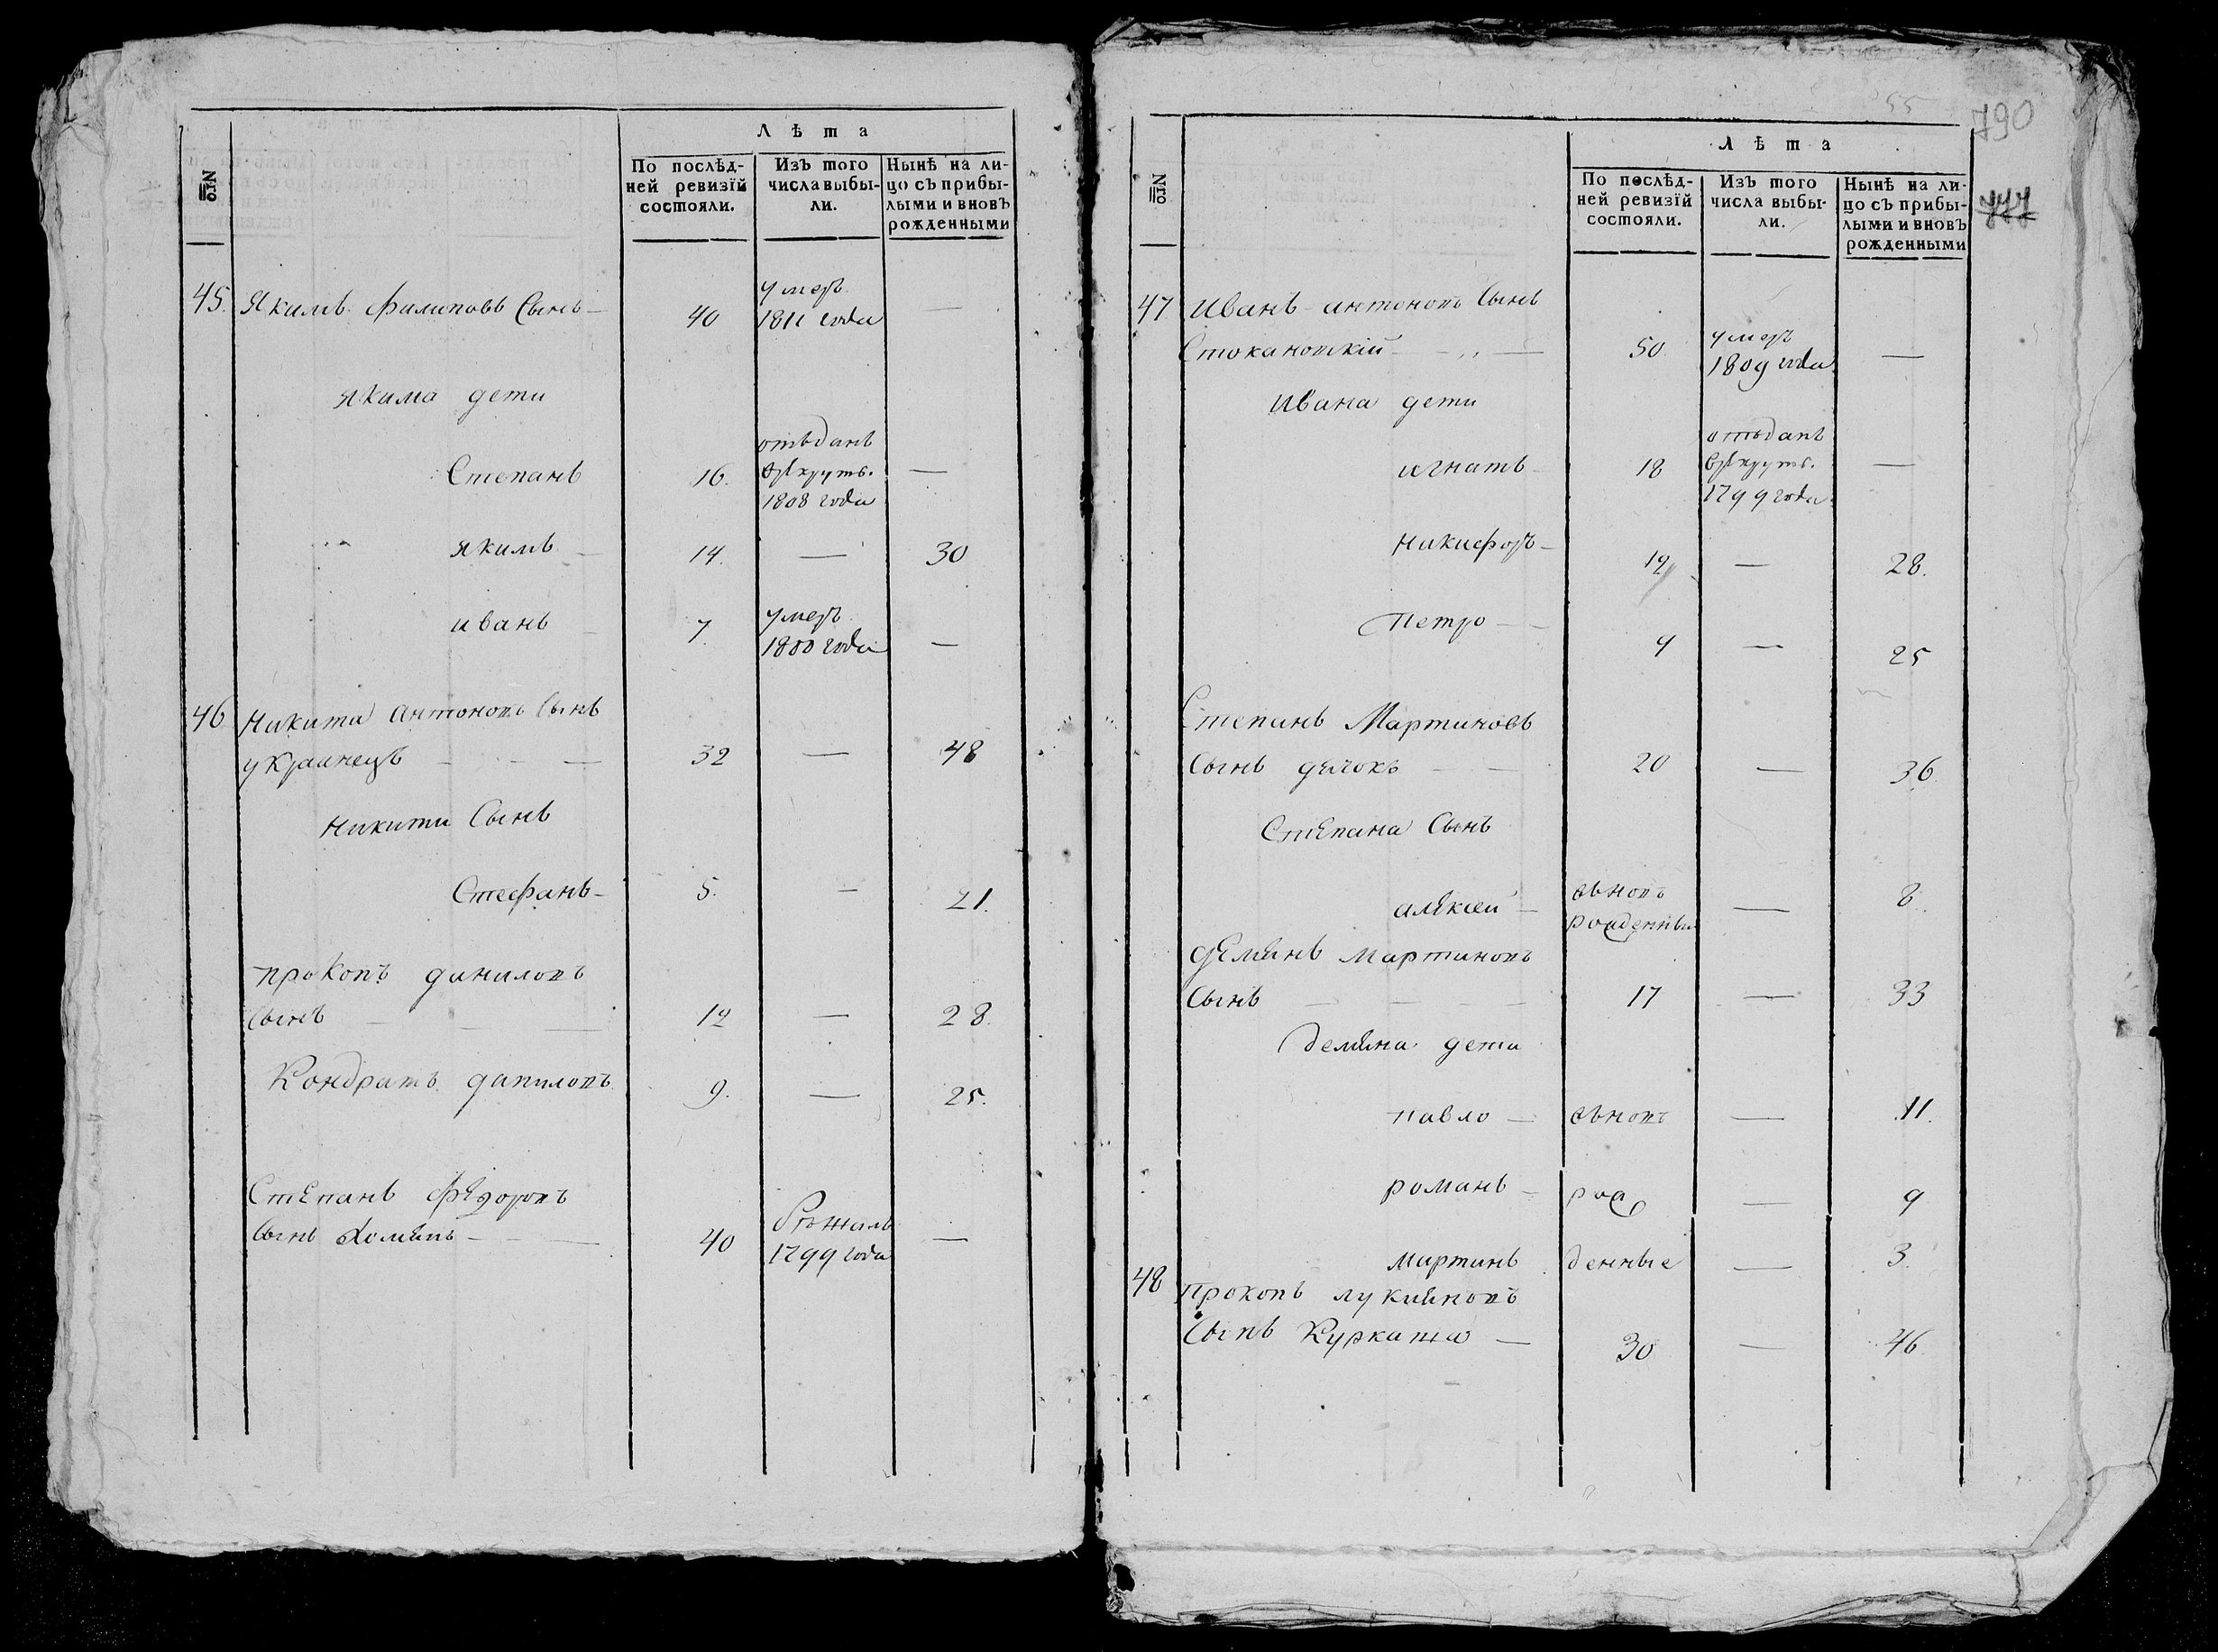 Лѣта
№
По послѣд-
ней ревизїй
состояли.
Изъ того
числа выбы-
ли.
Нынѣ на ли-
цо съ прибы-
лыми и вновь
рожденными
45. Якимъ Филиповъ Сынъ — 40 умеръ 1811 года —
якима дети
Степанъ 16. отъданъ врекрутъ. 1808 года —
якимъ — 14. — 30
иванъ — 7. умеръ 1800 года —
46 Никита антоновъ Сынъ
украинецъ — 32 — 48
Никити Сынъ
Стефанъ — 5. — 21.
прокопъ даниловъ
Сынъ — 12 — 28.
Кондратъ даниловъ 9. — 25.
Степанъ федоровъ
Сынъ 40 1799 года —
790
55
777
Лѣта
№
По послѣд-
ней ревизїй
состояли.
Изъ того
числа выбы-
ли.
Нынѣ на ли-
цо съ прибы-
лыми и вновь
рожденными
47 Иванъ антоновъ Сынъ
Стокановскій — 50 умеръ 1809 года —
Ивана дети
игнатъ 18 отъданъ врекрутъ. 1799 года —
Никифоръ — 12 — 28.
Петро — 9 — 25
Степанъ Мартиновъ
Сынъ — 20 — 36
Степана Сынъ
алексей — вьновъ рожденный — 8
демянъ мартиновъ
Сынъ — 17 — 33
демяна дети
павло — вьновъ — 11.
романъ — рож — 9
мартинъ денные — 3.
48 прокопъ лукияновъ
Сынъ — 30 — 46